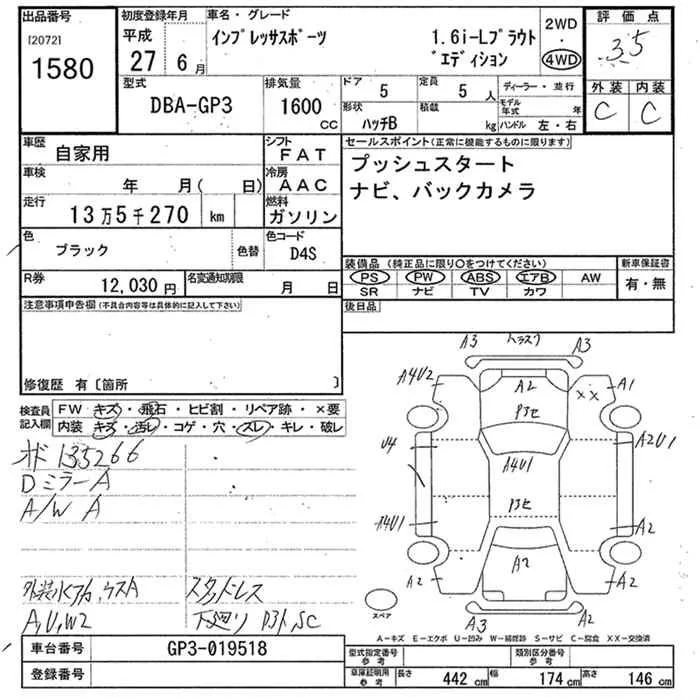 出品番号 初度登録年月 車名・グレード 評価点
[2072] 平成 インプレッサスポーツ 1.6i-Lプラウト 2WD
1580 27 6月 ゛エディション 4WD 3.5
型式 排気量 ドア 定員 ディーラー・並行 外装 内装
DBA-GP3 1600 CC 5 5人 モデル年式 年 C C
形状 積載
ハッチB kg ハンドル 左・右
車歴 自家用 シフト FAT セールスポイント(正常に機能するものに限ります)
車検 年 月( 日) 冷房 AAC プッシュスタート
走行 13万5千270 km 燃料 ガソリン ナビ、バックカメラ
色 ブラック 色替 色コード D4S
R券 12,030円 名変通知期限 月 日
装備品(純正品に限り○をつけてください) 新車保証書
PS PW ABS エアB AW 有・無
SR ナビ TV カワ
注意事項申告欄(不具合内容等は具体的に記入して下さい) 後日品
修復歴 有〔箇所 〕
検査員記入欄 FW キズ・飛石・ヒビ割・リペア跡・×要
内装 キズ・汚レ・コゲ・穴・スレ・キレ・破レ
135266
DミラーA
A/W A
スタッドレス
A,U,W2 下廻り サビ,SC
A3 A3
A4U2 A2 A1
XX
U4 A4U1 A2U1
A4U1 A2
A2 A2 A2
A3 A2
スペア
A－キズ E－エクボ U－凹み W－補修跡 S－サビ C－腐食 XX－交換済
車台番号 GP3-019518 型式指定番号 参考 類別区分番号 参考
登録番号 車庫証明用 参考 長さ 442 cm 幅 174 cm 高さ 146 cm